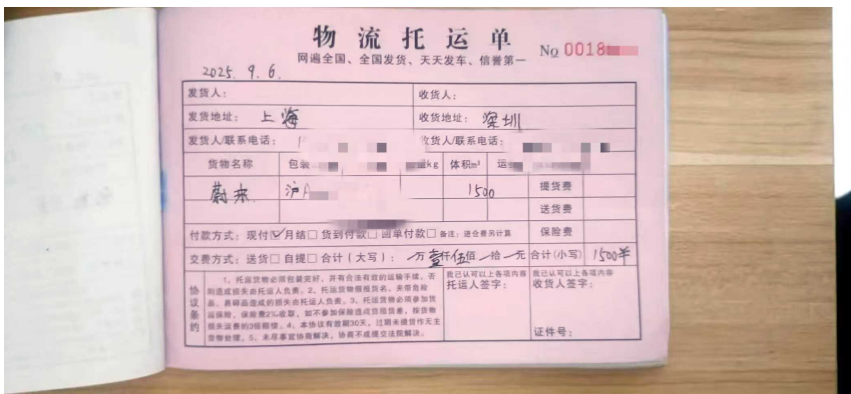 物流托运单
网遍全国、全国发货、天天发车、信誉第一
No 0018
2025.9.6.
发货人： 收货人：
发货地址：上海 收货地址：深圳
发货人/联系电话： 收货人/联系电话：
货物名称 包装 kg 体积m³ 运 提货费
蔚来 沪A 1500
送货费
付款方式：现付☑月结□货到付款□回单付款□备注：进仓费另计算 保险费
交费方式：送货□自提□合计（大写）： 万壹仟伍佰 拾 元 合计(小写) 1500
协议条约
1、托运货物必须包装完好，并有合法有效的运输手续，否
则造成损失由托运人负责。2、托运货物假报货名，夹带危险
品、易碎品造成的损失由托运人负责。3、托运货物必须参加货
运保险，保险费2%收取，如不参加保险造成货段货差，按货物
损失运费的3倍赔偿。4、本协议有效期30天，过期未提货作无主
货物处理。5、未尽事宜协商解决，协商不成提交法院解决。
我已认可以上各项内容
托运人签字：
我已认可以上各项内容
收货人签字：
证件号：